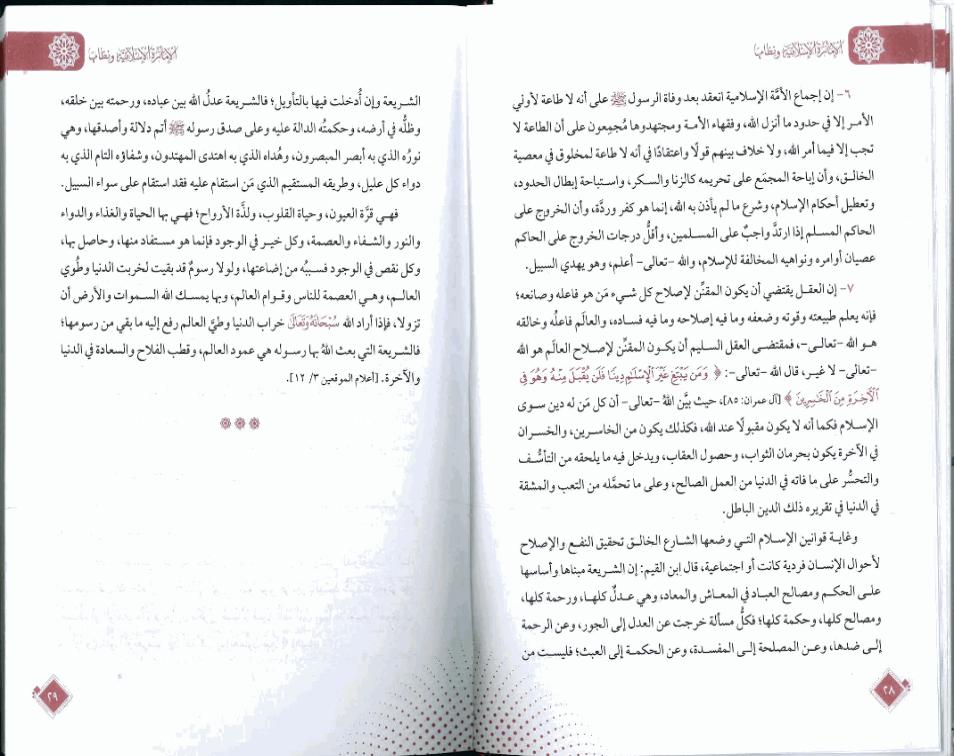 الإمارة الإسلامية ونظامها
٦- إن إجماع الأمَّة الإسلامية انعقد بعد وفاة الرسول ﷺ على أنه لا طاعة لأولي
الأمـر إلا في حدود ما أنزل الله، وفقهاء الأمـة ومجتهدوها مُجمِعون على أن الطاعة لا
تجب إلا فيما أمر الله، ولا خلاف بينهم قولًا واعتقادًا في أنه لا طاعة لمخلوق في معصية
الخالـق، وأن إباحة المجمَع على تحريمه كالزنا والسكر، واستباحة إبطال الحدود،
وتعطيل أحكام الإسلام، وشرع ما لم يأذن به الله، إنما هو كفر وردَّة، وأن الخروج على
الحاكم المسلم إذا ارتدَّ واجبٌ على المسلمين، وأقلُّ درجات الخروج على الحاكم
عصيان أوامره ونواهيه المخالفة للإسلام، والله -تعالى- أعلم، وهو يهدي السبيل.
٧- إن العقـل يقتضي أن يكون المقنِّن لإصلاح كل شيء مَن هو فاعله وصانعه؛
فإنه يعلم طبيعته وقوته وضعفه وما فيه إصلاحه وما فيه فساده، والعالَم فاعلُه وخالقه
هـو الله -تعالـى-، فمقتضى العقل السليم أن يكون المقنِّن لإصلاح العالَم هو الله
-تعالى- لا غيـر، قال الله -تعالى-: ﴿ وَمَن يَبْتَغِ غَيْرَ الْإِسْلَامِ دِينًا فَلَن يُقْبَلَ مِنْهُ وَهُوَ فِي
الْآخِرَةِ مِنَ الْخَاسِرِينَ ﴾ [آل عمران: ٨٥]، حيث بيَّن اللهُ -تعالى- أن كل مَن له دين سوى
الإسلام فكما أنه لا يكون مقبولًا عند الله، فكذلك يكون من الخاسرين، والخسران
في الآخرة يكون بحرمان الثواب، وحصول العقاب، ويدخل فيه ما يلحقه من التأسُّف
والتحسُّر على ما فاته في الدنيا من العمل الصالح، وعلى ما تحمَّله من التعب والمشقة
في الدنيا في تقريره ذلك الدين الباطل.
وغايـة قوانين الإسـلام التـي وضعها الشـارع الخالـق تحقيق النفـع والإصلاح
لأحوال الإنسـان فردية كانت أو اجتماعية، قال ابن القيم: إن الشـريعة مبناها وأساسها
علـى الحكم ومصالح العباد في المعـاش والمعاد، وهي عدلٌ كلهـا، ورحمة كلها،
ومصالح كلها، وحكمة كلها؛ فكلُّ مسألة خرجت عن العدل إلى الجور، وعن الرحمة
إلـى ضدها، وعـن المصلحة إلـى المفسدة، وعن الحكمة إلى العبث؛ فليست من
٢٨
الإمارة الإسلامية ونظامها
الشـريعة وإن أُدخلت فيها بالتأويل؛ فالشـريعة عدلُ الله بين عباده، ورحمته بين خلقه،
وظلُّه في أرضه، وحكمتُه الدالة عليه وعلى صدق رسوله ﷺ أتم دلالة وأصدقها، وهي
نورُه الذي به أبصر المبصرون، وهُداه الذي به اهتدى المهتدون، وشفاؤه التام الذي به
دواء كل عليل، وطريقه المستقيم الذي مَن استقام عليه فقد استقام على سواء السبيل.
فهـي قرَّة العيون، وحياة القلوب، ولذَّة الأرواح؛ فهـي بها الحياة والغذاء والدواء
والنور والشـفاء والعصمة، وكل خيـر في الوجود فإنما هو مسـتفاد منها، وحاصل بها،
وكل نقص في الوجود فسببُه من إضاعتها، ولولا رسومٌ قد بقيت لخربت الدنيا وطُوي
العالـم، وهـي العصمة للناس وقوام العالم، وبها يمسـك الله السـموات والأرض أن
تزولا، فإذا أراد الله سُبْحَانَهُ وَتَعَالَى خراب الدنيا وطيَّ العالم رفع إليه ما بقي من رسومها؛
فالشـريعة التي بعث اللهُ بها رسوله هي عمود العالم، وقطب الفلاح والسعادة في الدنيا
والآخرة. [أعلام الموقعين ٣/ ١٢].
٢٩